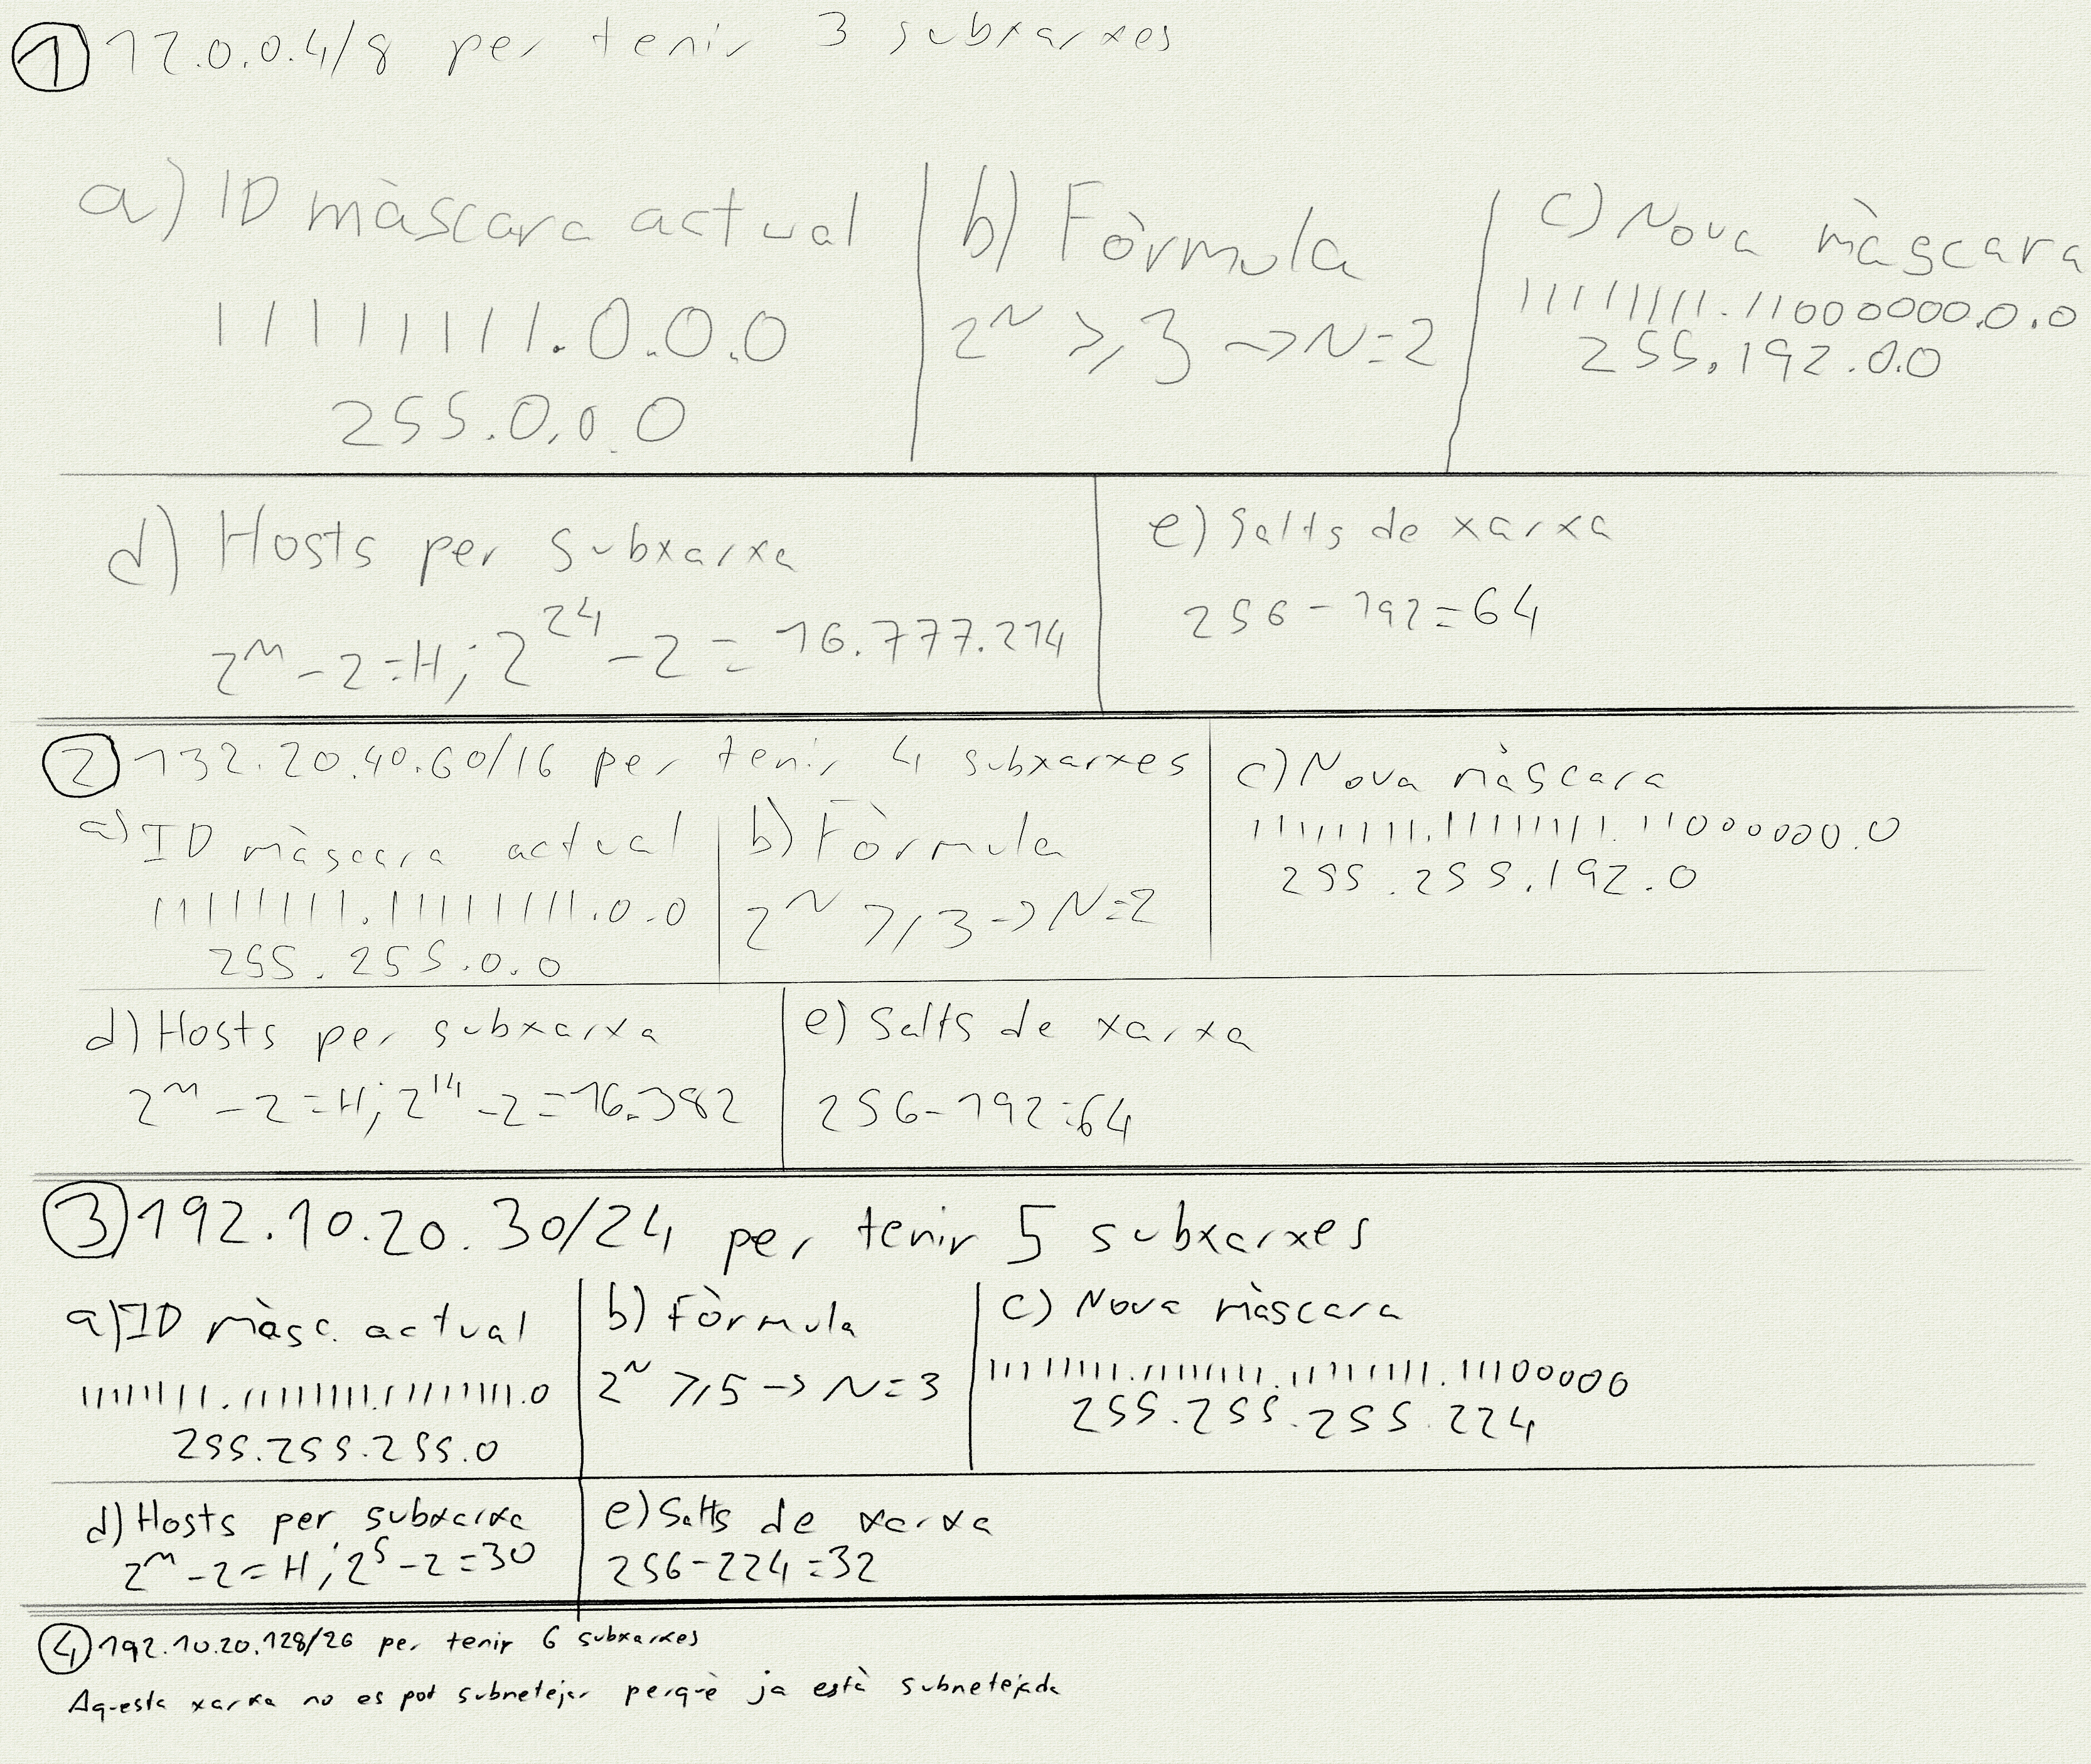 ① 12.0.0.4/8 per tenir 3 subxarxes
a) ID màscara actual
11111111.0.0.0
255.0.0.0
b) Fòrmula
2^N ≥ 3 -> N=2
c) Nova màscara
11111111.11000000.0.0
255.192.0.0
d) Hosts per subxarxa
2^m - 2 = H; 2^24 - 2 = 16.777.214
e) Salts de xarxa
256 - 192 = 64
② 132.20.40.60/16 per tenir 4 subxarxes
a) ID màscara actual
11111111.11111111.0.0
255.255.0.0
b) Fòrmula
2^N ≥ 3 -> N=2
c) Nova màscara
11111111.11111111.11000000.0
255.255.192.0
d) Hosts per subxarxa
2^m - 2 = H; 2^14 - 2 = 16.382
e) Salts de xarxa
256 - 192 = 64
③ 192.10.20.30/24 per tenir 5 subxarxes
a) ID màsc. actual
11111111.11111111.11111111.0
255.255.255.0
b) Fòrmula
2^N ≥ 5 -> N=3
c) Nova màscara
11111111.11111111.11111111.11100000
255.255.255.224
d) Hosts per subxarxa
2^m - 2 = H; 2^5 - 2 = 30
e) Salts de xarxa
256 - 224 = 32
④ 192.10.20.128/26 per tenir 6 subxarxes
Aquesta xarxa no es pot subnetejar perquè ja està subnetejada